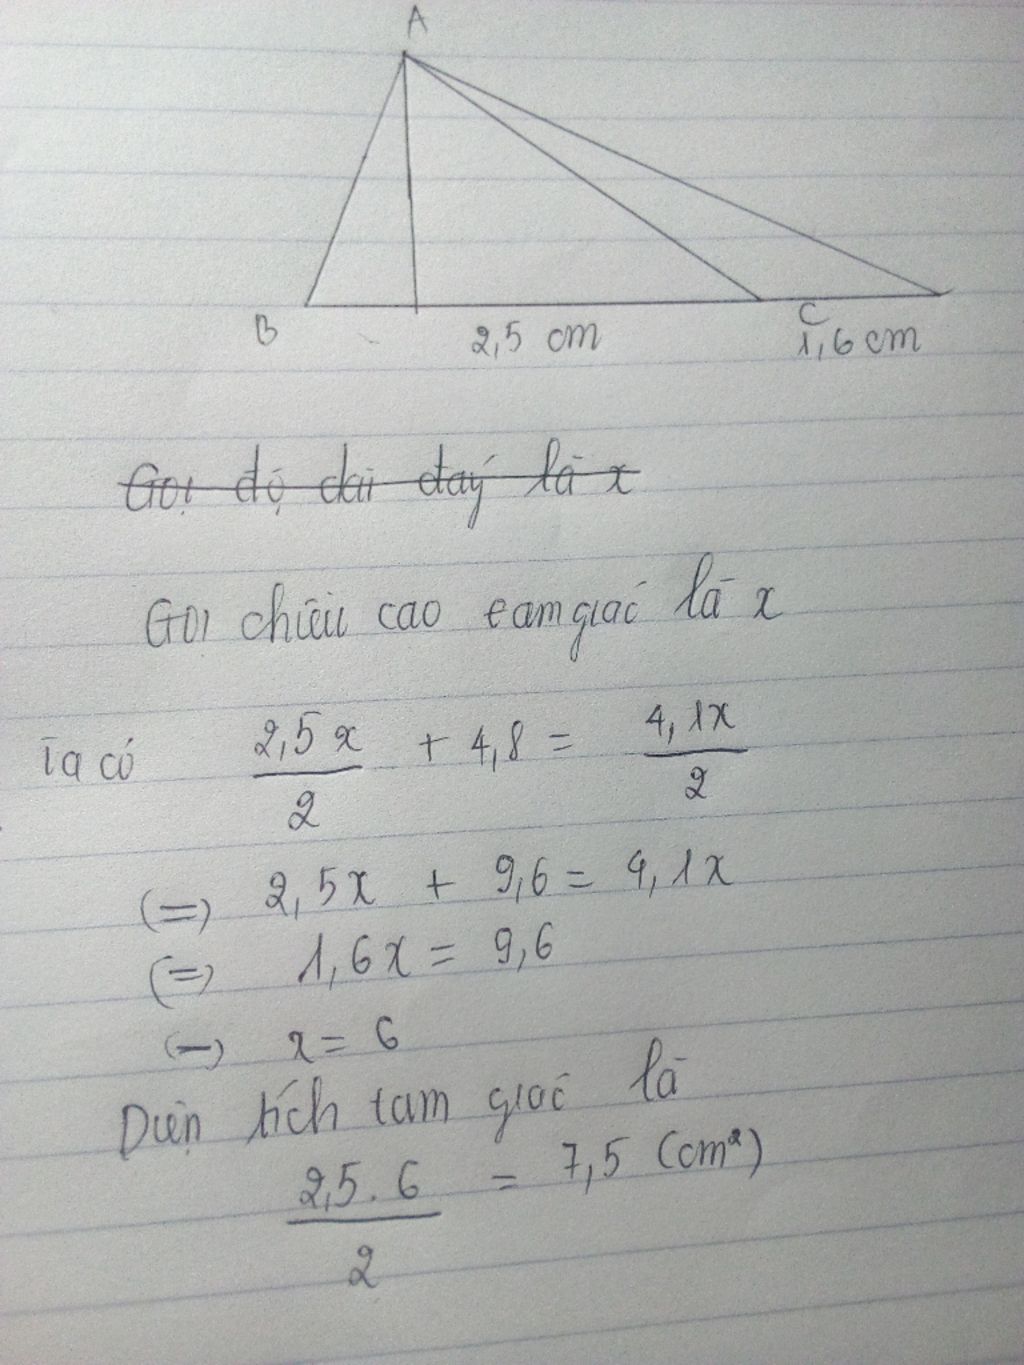 A
B
C
2,5 cm
1,6 cm
Gọi độ dài đáy là x
Gọi chiều cao tam giác là x
Ta có 2,5x/2 + 4,8 = 4,1x/2
(=) 2,5x + 9,6 = 4,1x
(=) 1,6x = 9,6
(=) x = 6
Diện tích tam giác là
2,5.6/2 = 7,5 (cm²)